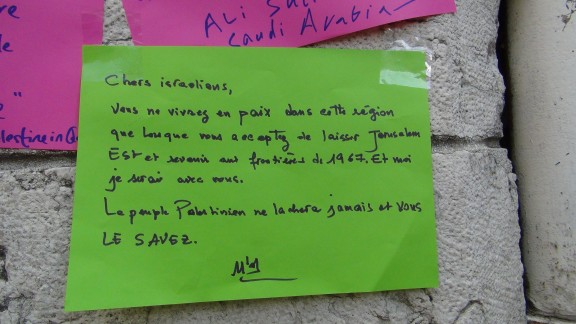 Ali
Saudi Arabia
Chers israeliens,
Vous ne vivrez en paix dans cette région
que lorsque vous acceptez de laisser Jerusalem
EST et revenir aux frontières de 1967. Et moi
je serai avec vous.
Le peuple Palestinien ne lachera jamais et VOUS
LE SAVEZ.